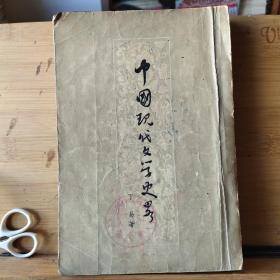 中國现代文学史略
丁易著